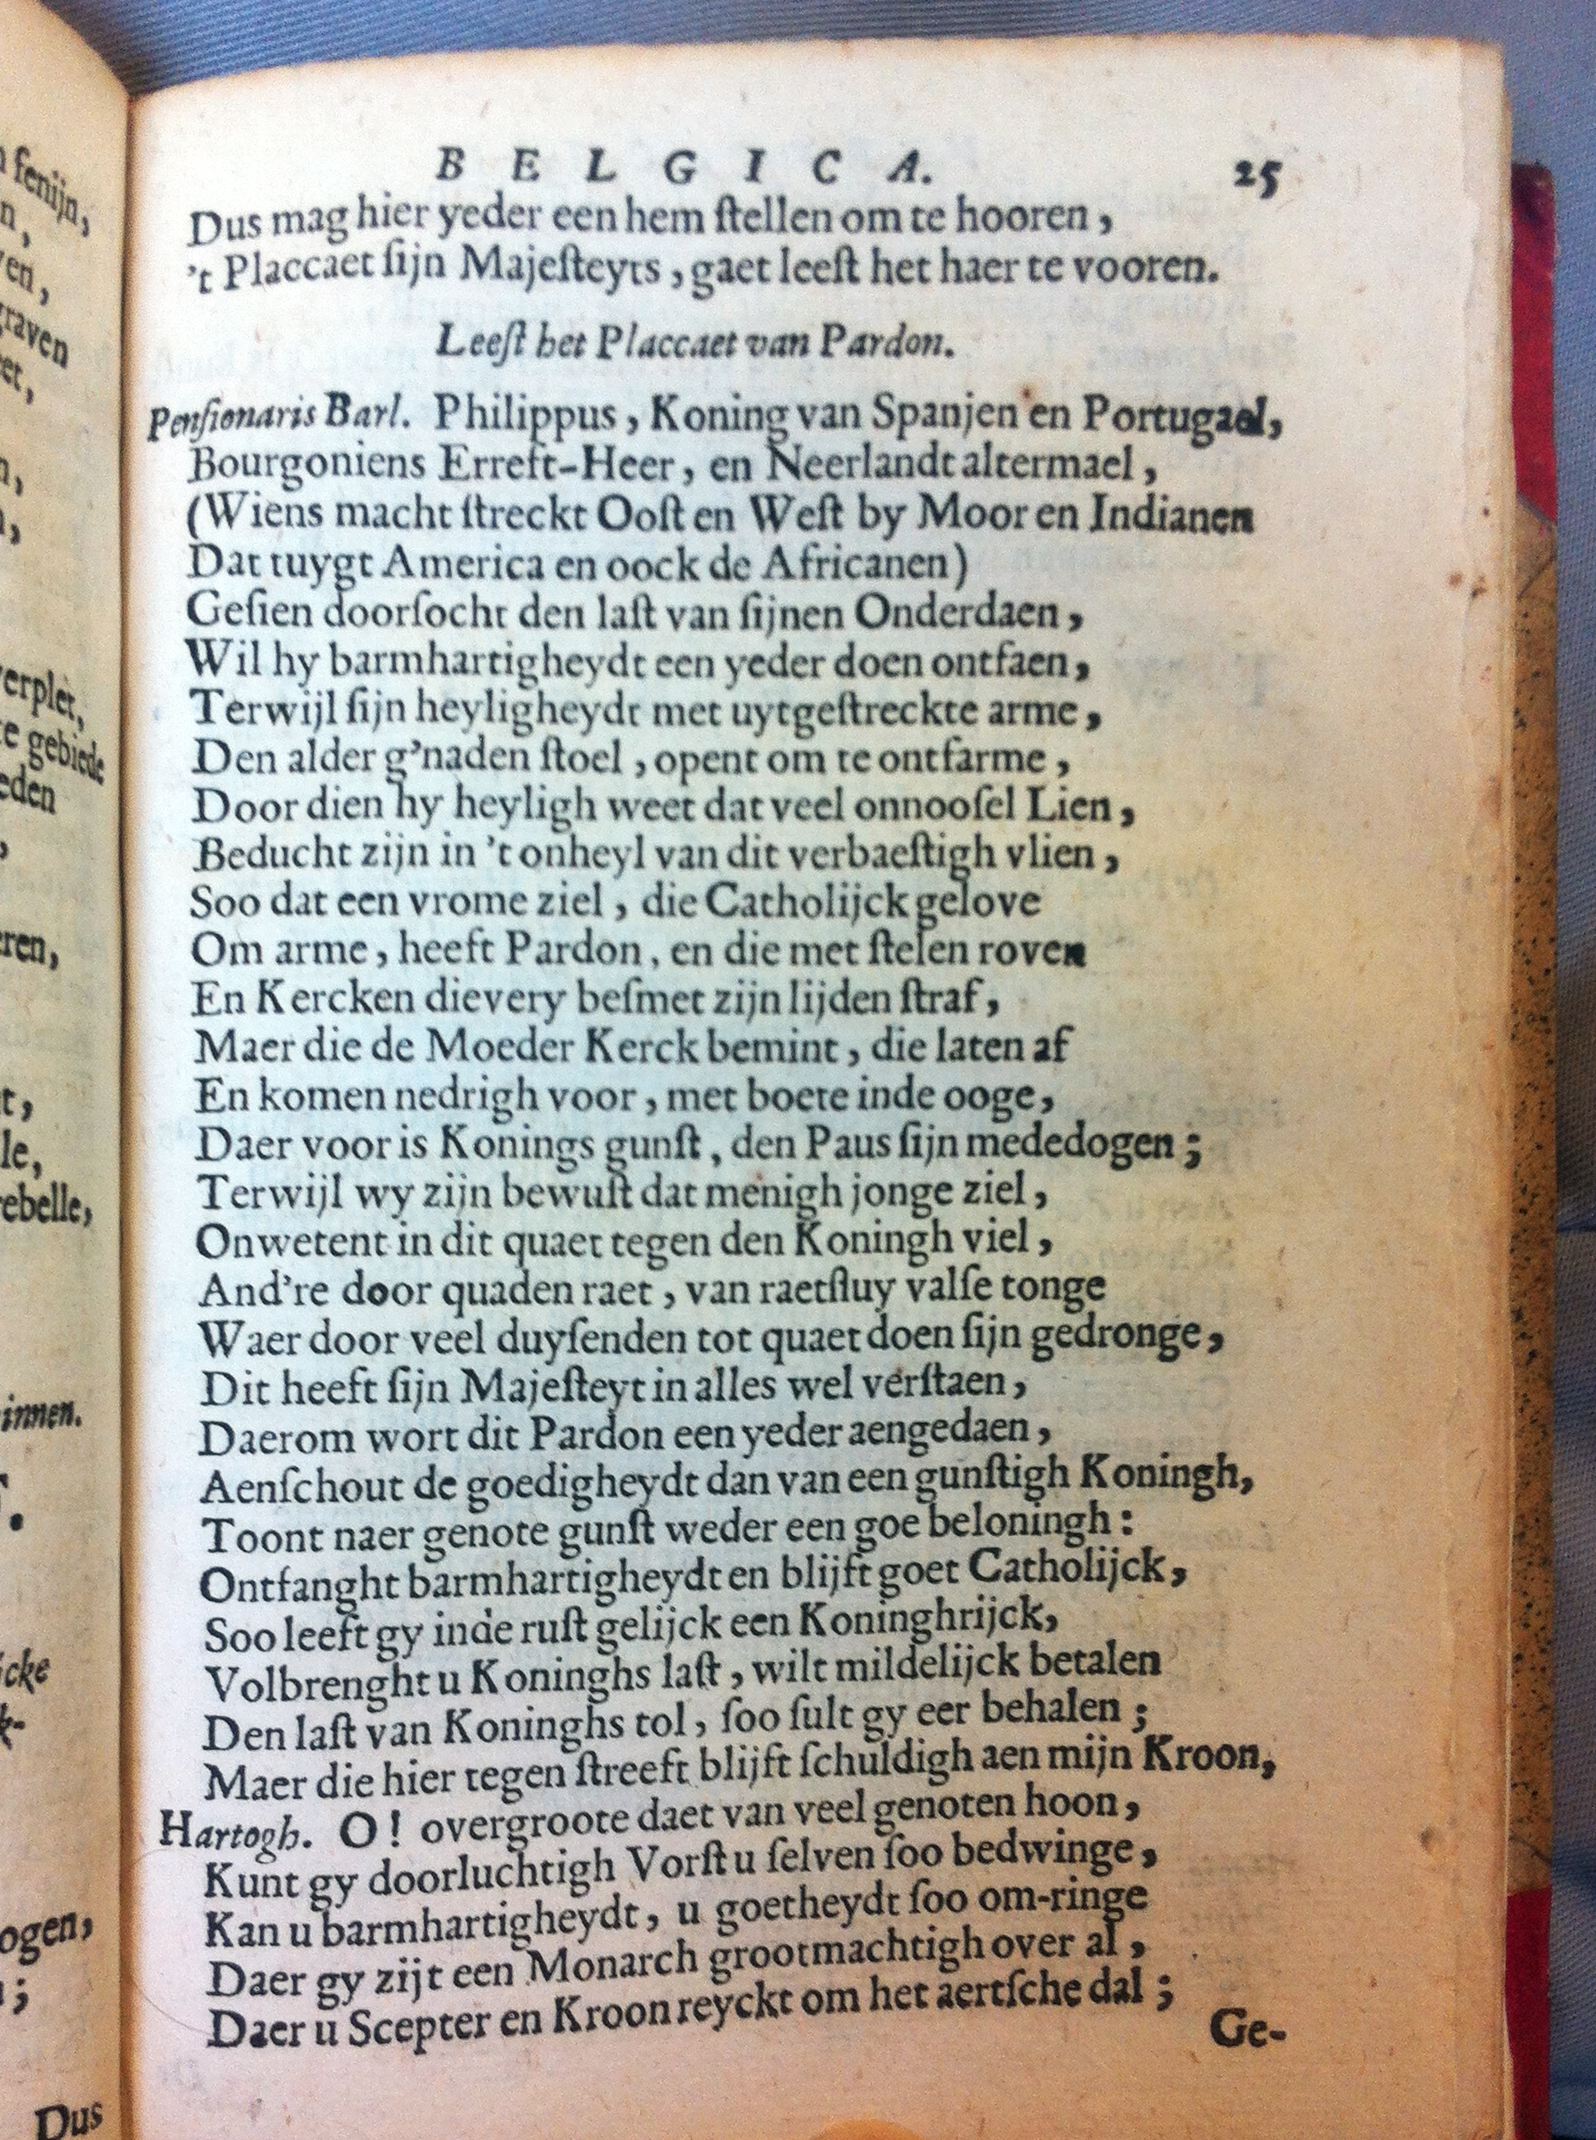 BELGICA. 25
Dus mag hier yeder een hem ſtellen om te hooren,
't Placcaet ſijn Majeſteyts, gaet leeſt het haer te vooren.
Leeſt het Placcaet van Pardon.
Penſionaris Barl. Philippus, Koning van Spanjen en Portugael,
Bourgoniens Erreft-Heer, en Neerlandt altermael,
(Wiens macht ſtreckt Ooſt en Weſt by Moor en Indianen
Dat tuygt America en oock de Africanen)
Geſien doorſocht den laſt van ſijnen Onderdaen,
Wil hy barmhartigheydt een yeder doen ontfaen,
Terwijl ſijn heyligheydt met uytgeſtreckte arme,
Den alder g'naden ſtoel, opent om te ontfarme,
Door dien hy heyligh weet dat veel onnooſel Lien,
Beducht zijn in 't onheyl van dit verbaeſtigh vlien,
Soo dat een vrome ziel, die Catholijck gelove
Om arme, heeft Pardon, en die met ſtelen roven
En Kercken dievery beſmet zijn lijden ſtraf,
Maer die de Moeder Kerck bemint, die laten af
En komen nedrigh voor, met boete inde ooge,
Daer voor is Konings gunſt, den Paus ſijn mededogen;
Terwijl wy zijn bewuſt dat menigh jonge ziel,
Onwetent in dit quaet tegen den Koningh viel,
And're door quaden raet, van raetſluy valſe tonge
Waer door veel duyſenden tot quaet doen ſijn gedronge,
Dit heeft ſijn Majeſteyt in alles wel verſtaen,
Daerom wort dit Pardon een yeder aengedaen,
Aenſchout de goedigheydt dan van een gunſtigh Koningh,
Toont naer genote gunſt weder een goe beloningh:
Ontfanght barmhartigheydt en blijft goet Catholijck,
Soo leeft gy inde ruſt gelijck een Koninghrijck,
Volbrenght u Koninghs laſt, wilt mildelijck betalen
Den laſt van Koninghs tol, ſoo ſult gy eer behalen;
Maer die hier tegen ſtreeft blijft ſchuldigh aen mijn Kroon,
Hartogh. O! overgroote daet van veel genoten hoon,
Kunt gy doorluchtigh Vorſt u ſelven ſoo bedwinge,
Kan u barmhartigheydt, u goetheydt ſoo om-ringe
Daer gy zijt een Monarch grootmachtigh over al,
Daer u Scepter en Kroon reyckt om het aertſche dal;
Ge-
Dus